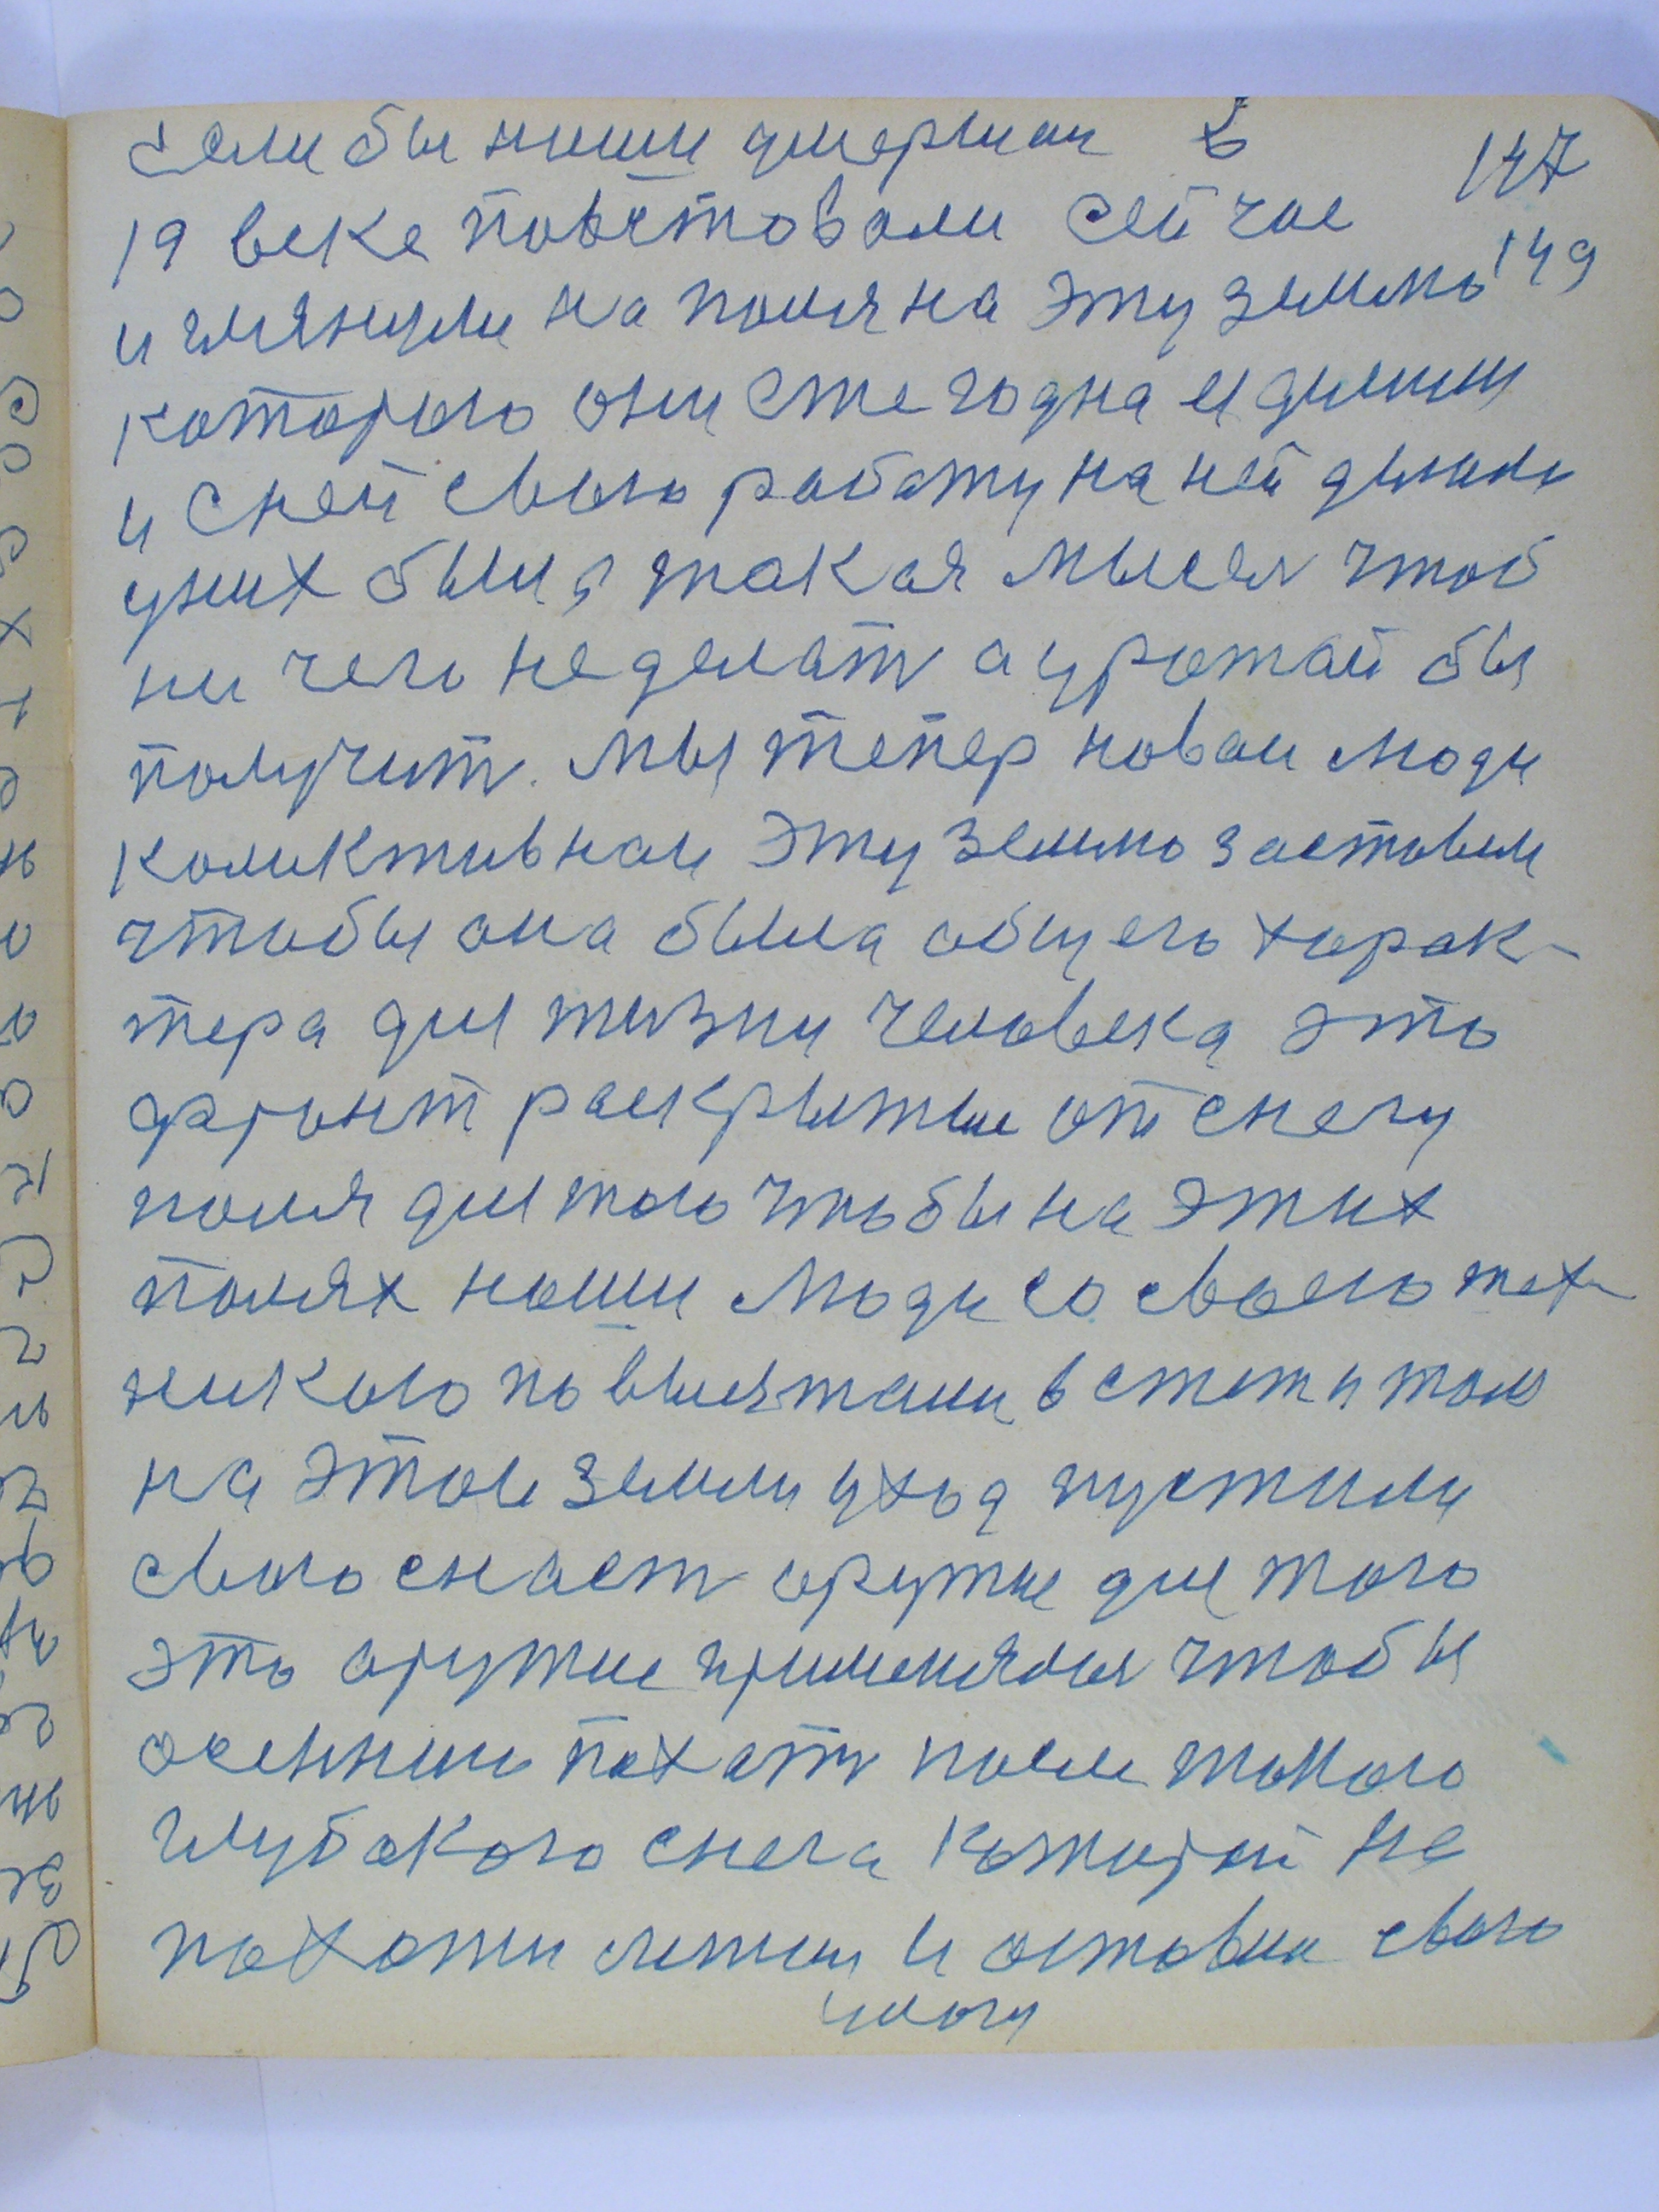 Если бы наши умершаи в
147
19 веке повстовали сейчас
149
и глянули на поля на эту землю
которую они
и с ней свою работу на ней делали
у них была такая мысля чтоб
ни чего не делать а урожай бы
получить. Мы тепер новаи люди
коликтивнаи эту землю заставим
чтобы она была общего харак-
тера для жизни человека это
фронт раскрытые от снегу
поля для того чтобы на этих
полях наши люди со своею тех-
никою
на этой земли уход пустили
свою снасть оружие для того
это оружие применяли чтобы
осеннию пахать после такого
глубокого снега который не
и оставил свою